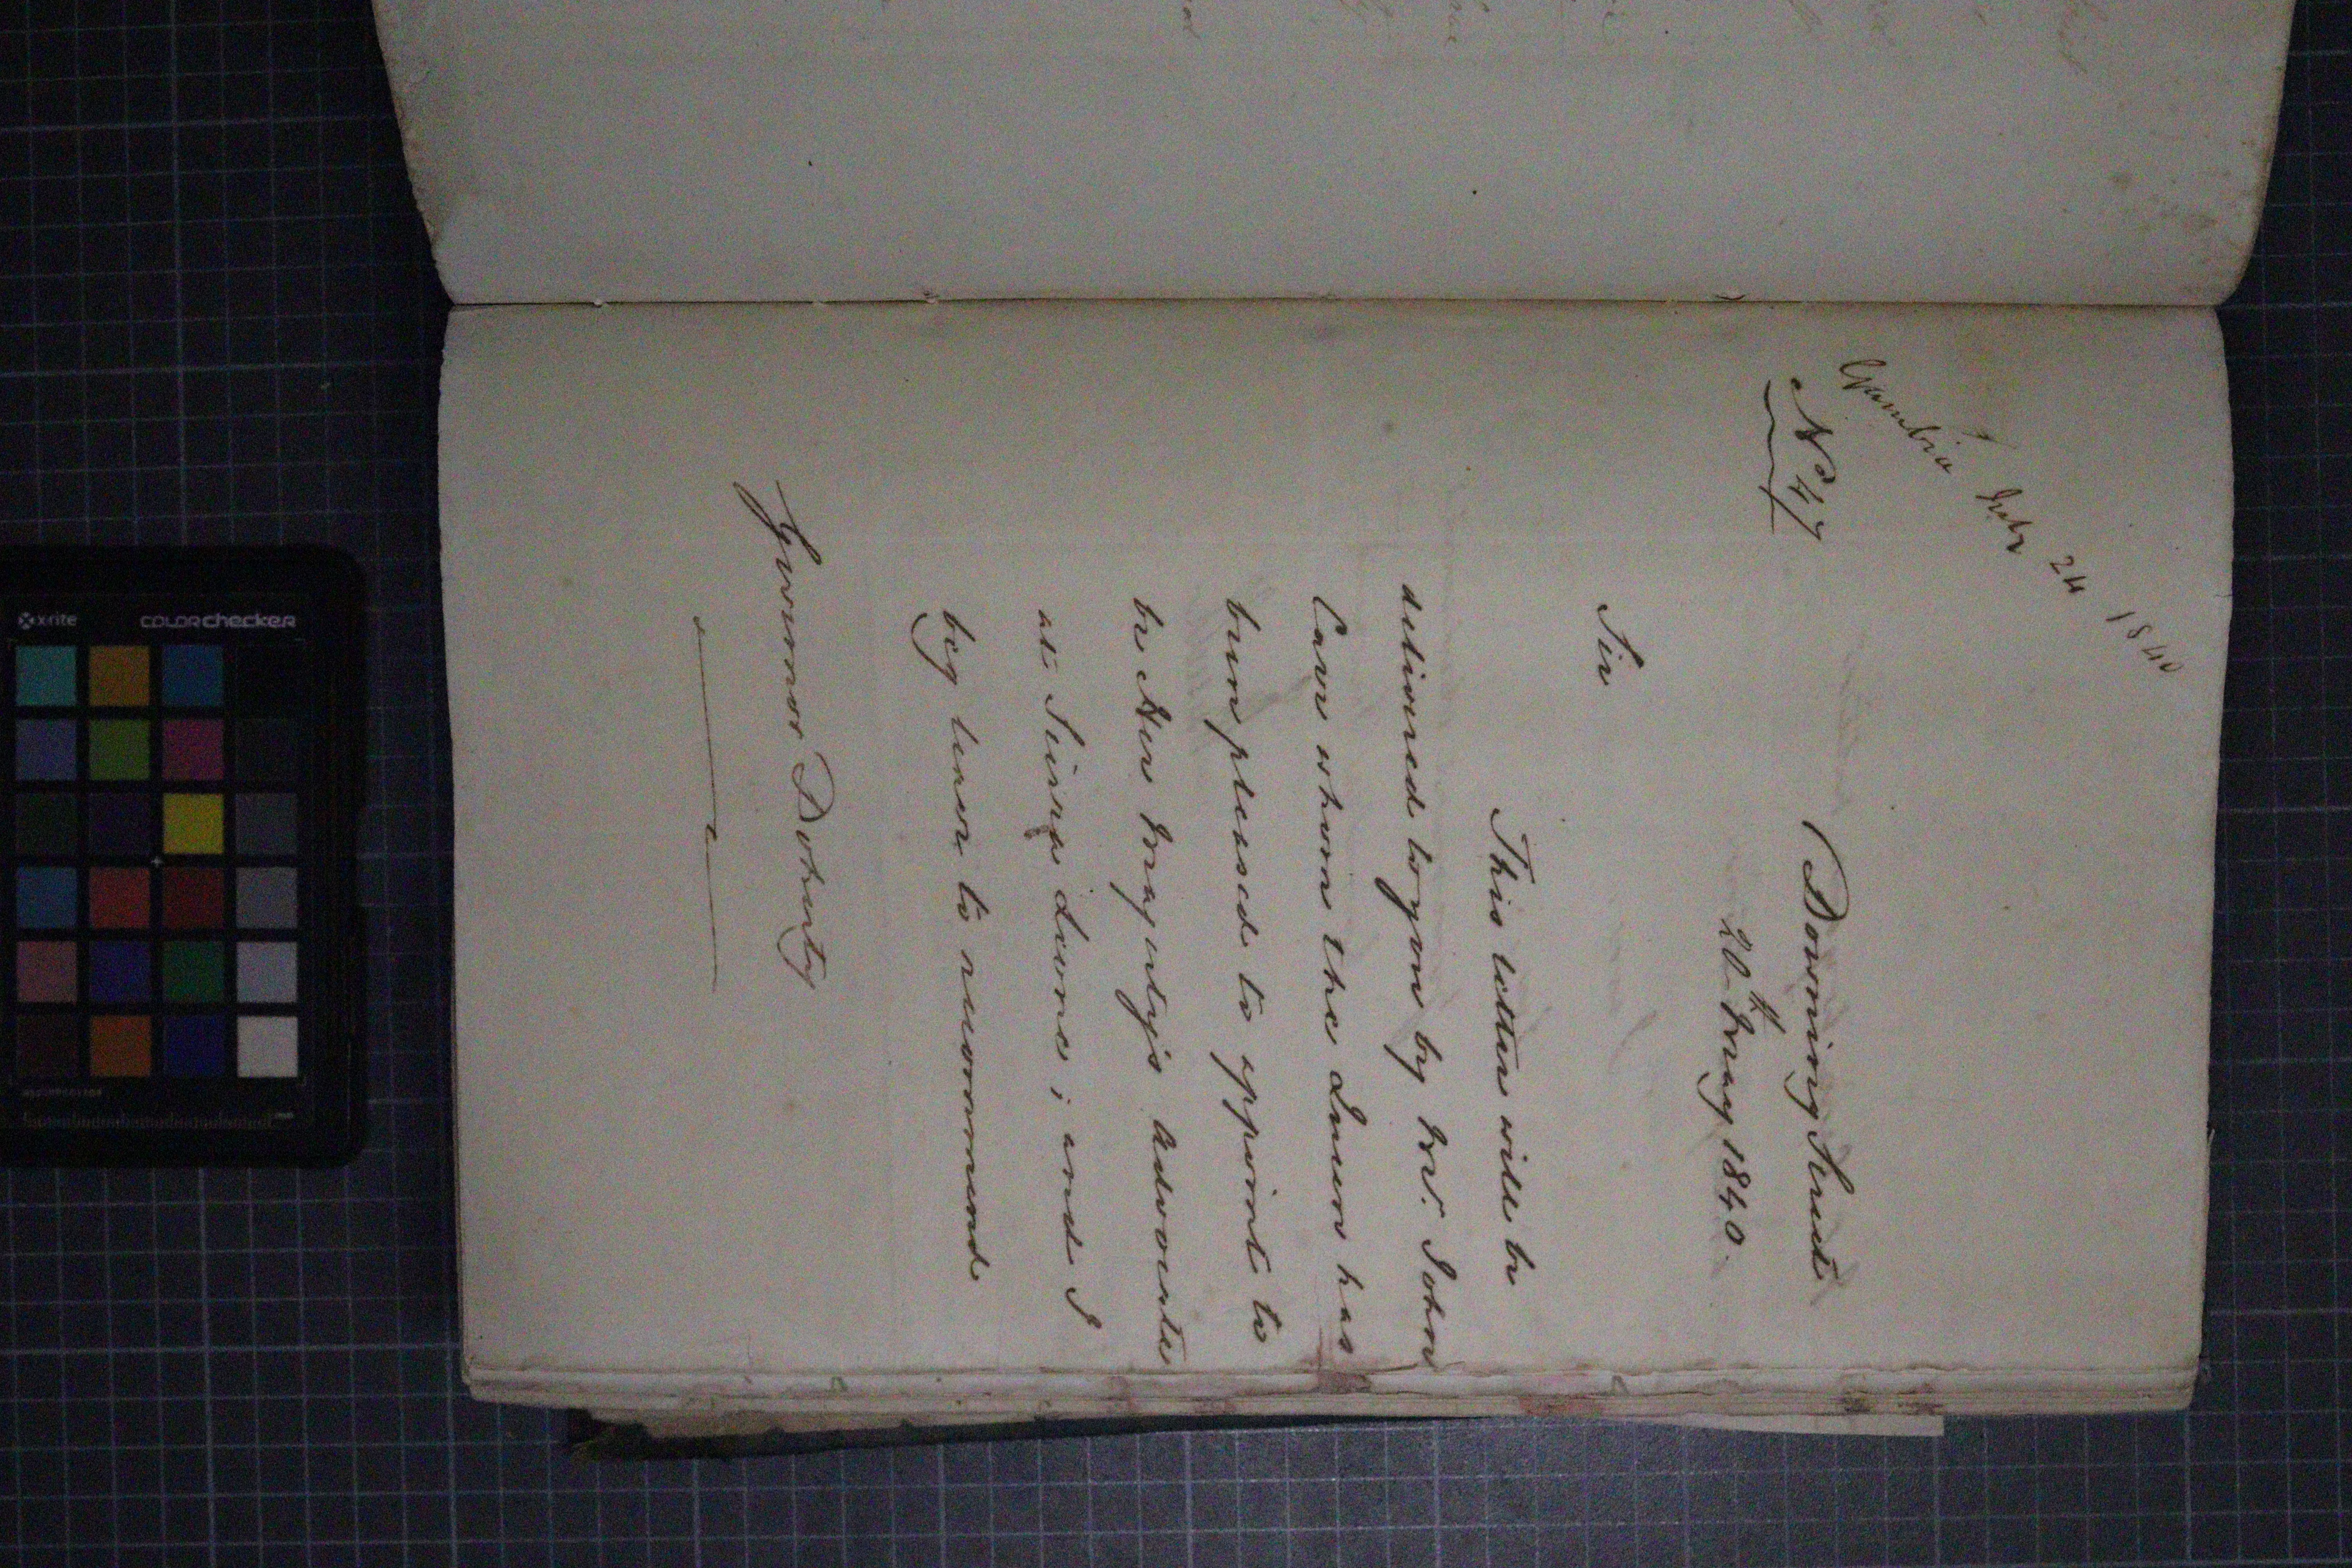 Gambia July 24 1840
No 47
Downing Street
20th May 1840.
Sir
This letter will be
delivered to you by Mr. John
Carr whom the Queen has
been pleased to appoint to
be Her Majesty's Advocate
at Sierra Leone; and I
beg leave to recommend
Governor Doherty
x-rite
colorchecker